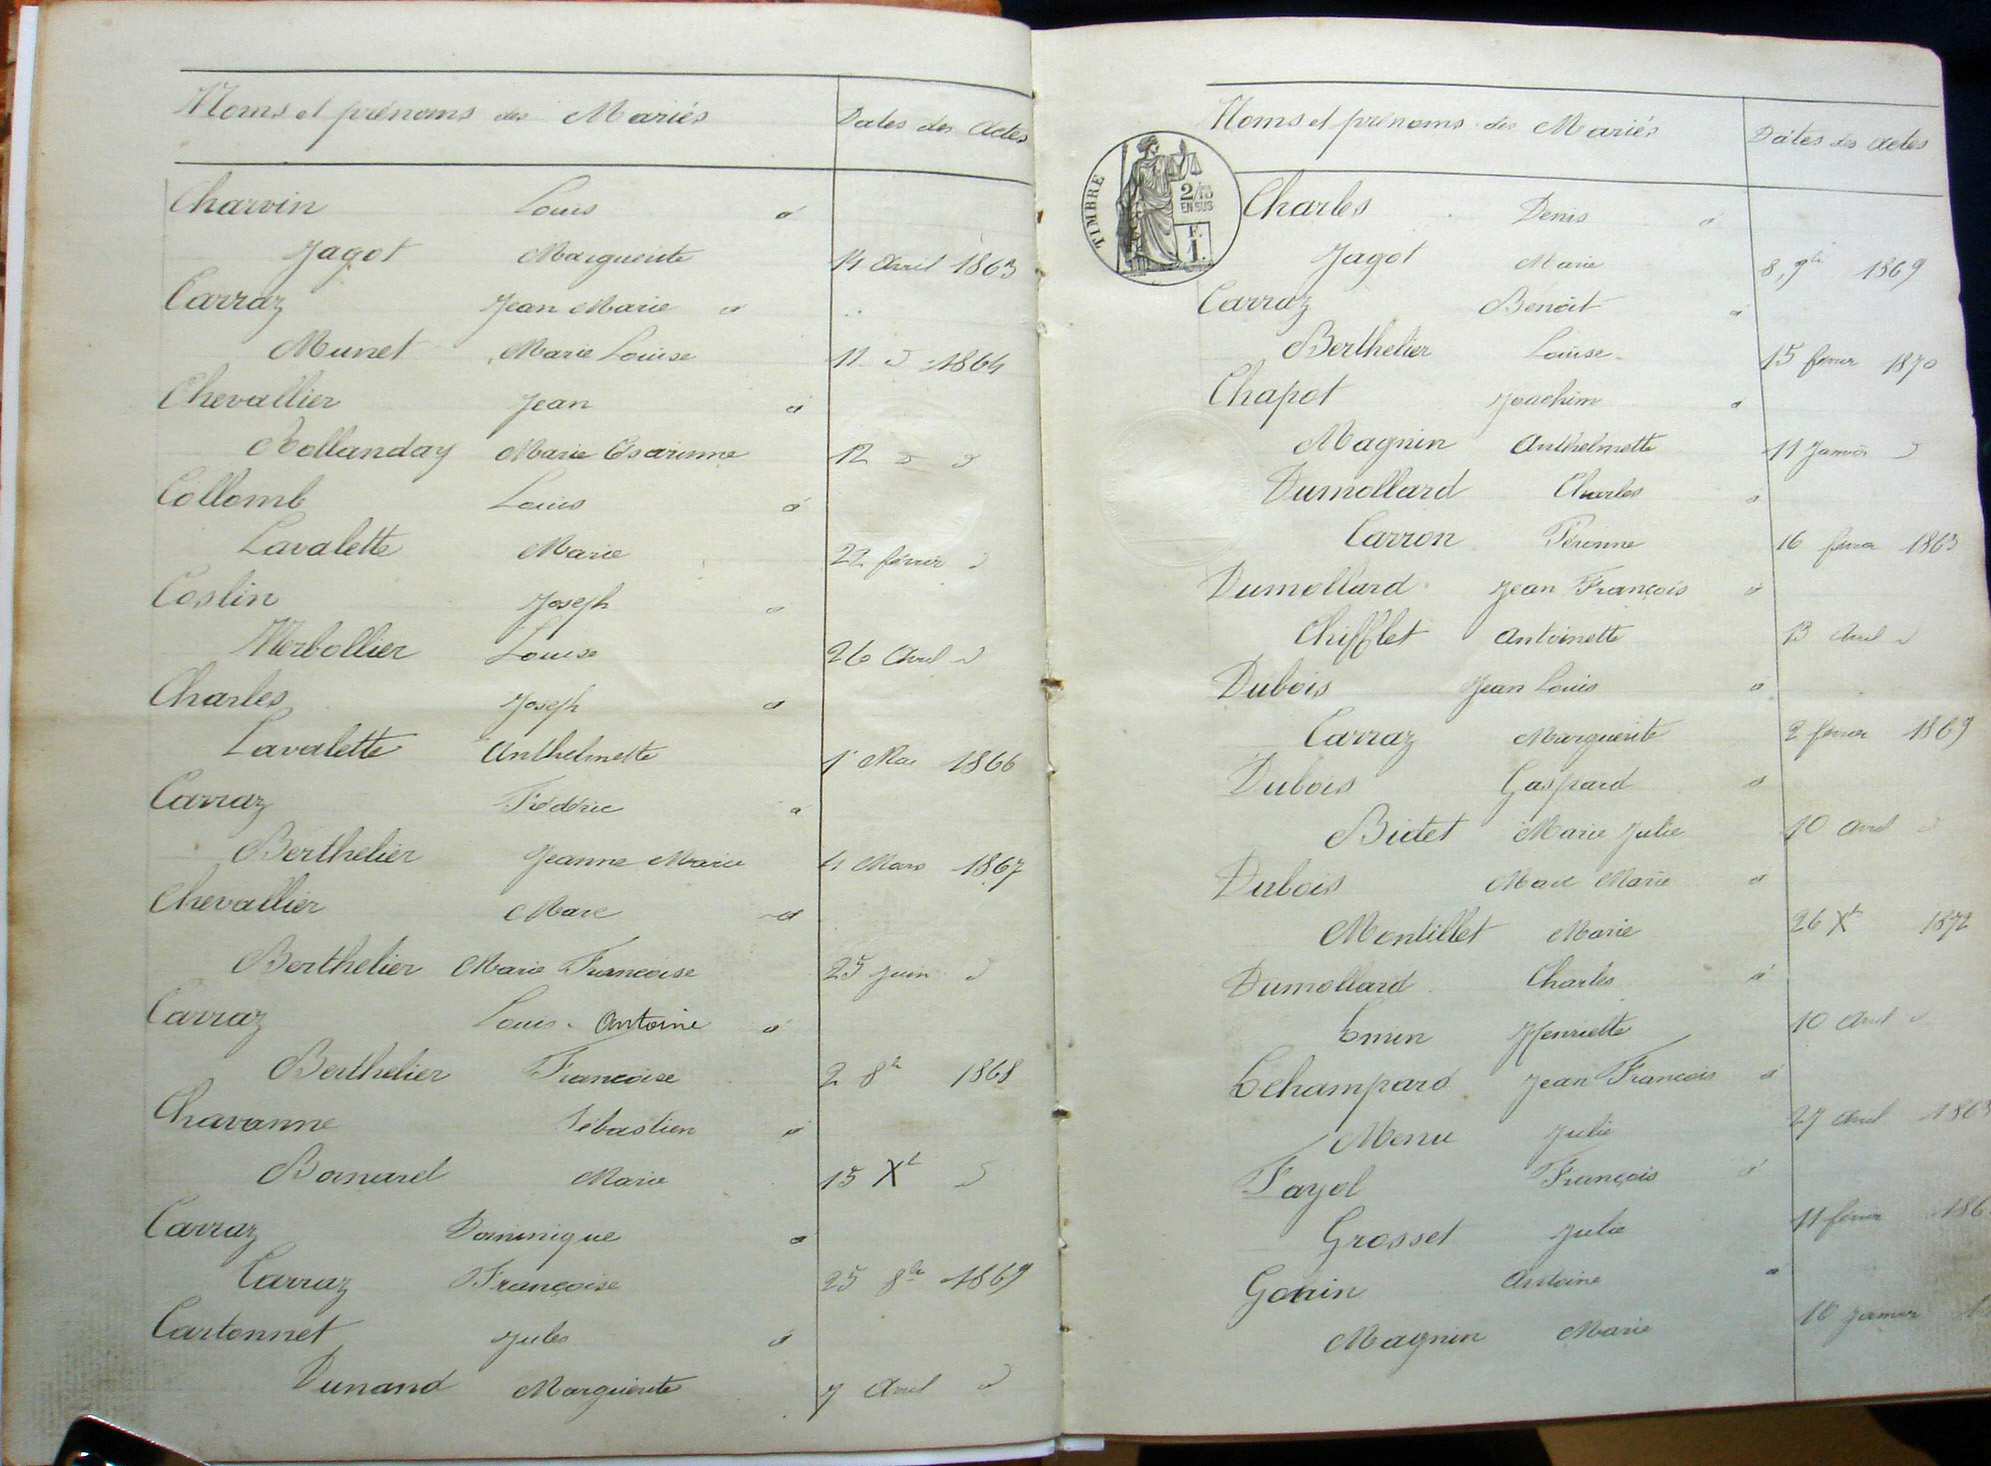 Noms et prénoms des Mariés Dates des Actes
Charvin Louis à
Jagot Marguerite 14 Avril 1863
Carraz Jean Marie à
Munet Marie Louise 11 d 1864
Chevallier Jean à
Mollanday Marie 12 d d
Collomb Louis à
Lavalette Marie 22 février d
Coslin Joseph à
Merbollier Louise 26 Avril d
Charles Joseph à
Lavalette Anthelmette 1r Mai 1866
Carraz Fédéric à
Berthelier Jeanne Marie 4 Mars 1867
Chevallier Marc à
Berthelier Marie Françoise 25 juin d
Carraz Louis Antoine à
Berthelier Francoise 2 8bre 1868
Chavanne Sébastien à
Bornarel Marie 15 Xbre d
Carraz Dominique à
Carraz Françoise 25 8bre 1869
Cartonnet Jules à
Dunand Marguerite 7 Avril d
Noms et prénoms des Mariés Dates des Actes
TIMBRE
2/10
EN SUS
F.
1.
Charles Denis à
Jagot Marie 8, 9bre 1869
Carraz Benoit à
Berthelier Louise 15 février 1870
Chapot Joachim à
Magnin Anthelmette 11 Janvier d
Dumollard Charles à
Carron Péronne 16 février 1863
Dumollard Jean François à
Chifflet Antoinette 13 Avril d
Dubois Jean Louis à
Carraz Marguerite 2 février 1869
Dubois Gaspard à
Bidet Marie Julie 10 Avril d
Dubois Marc Marie à
Montillet Marie 26 Xbre 1872
Dumollard Charles à
Emin Henriette 10 Avril d
Echampard Jean François à
Menu Julie 27 Avril 1863
Fayol François à
Grosset Julie 11 février 186
Gonin Antoine à
Magnin Marie 16 Janvier